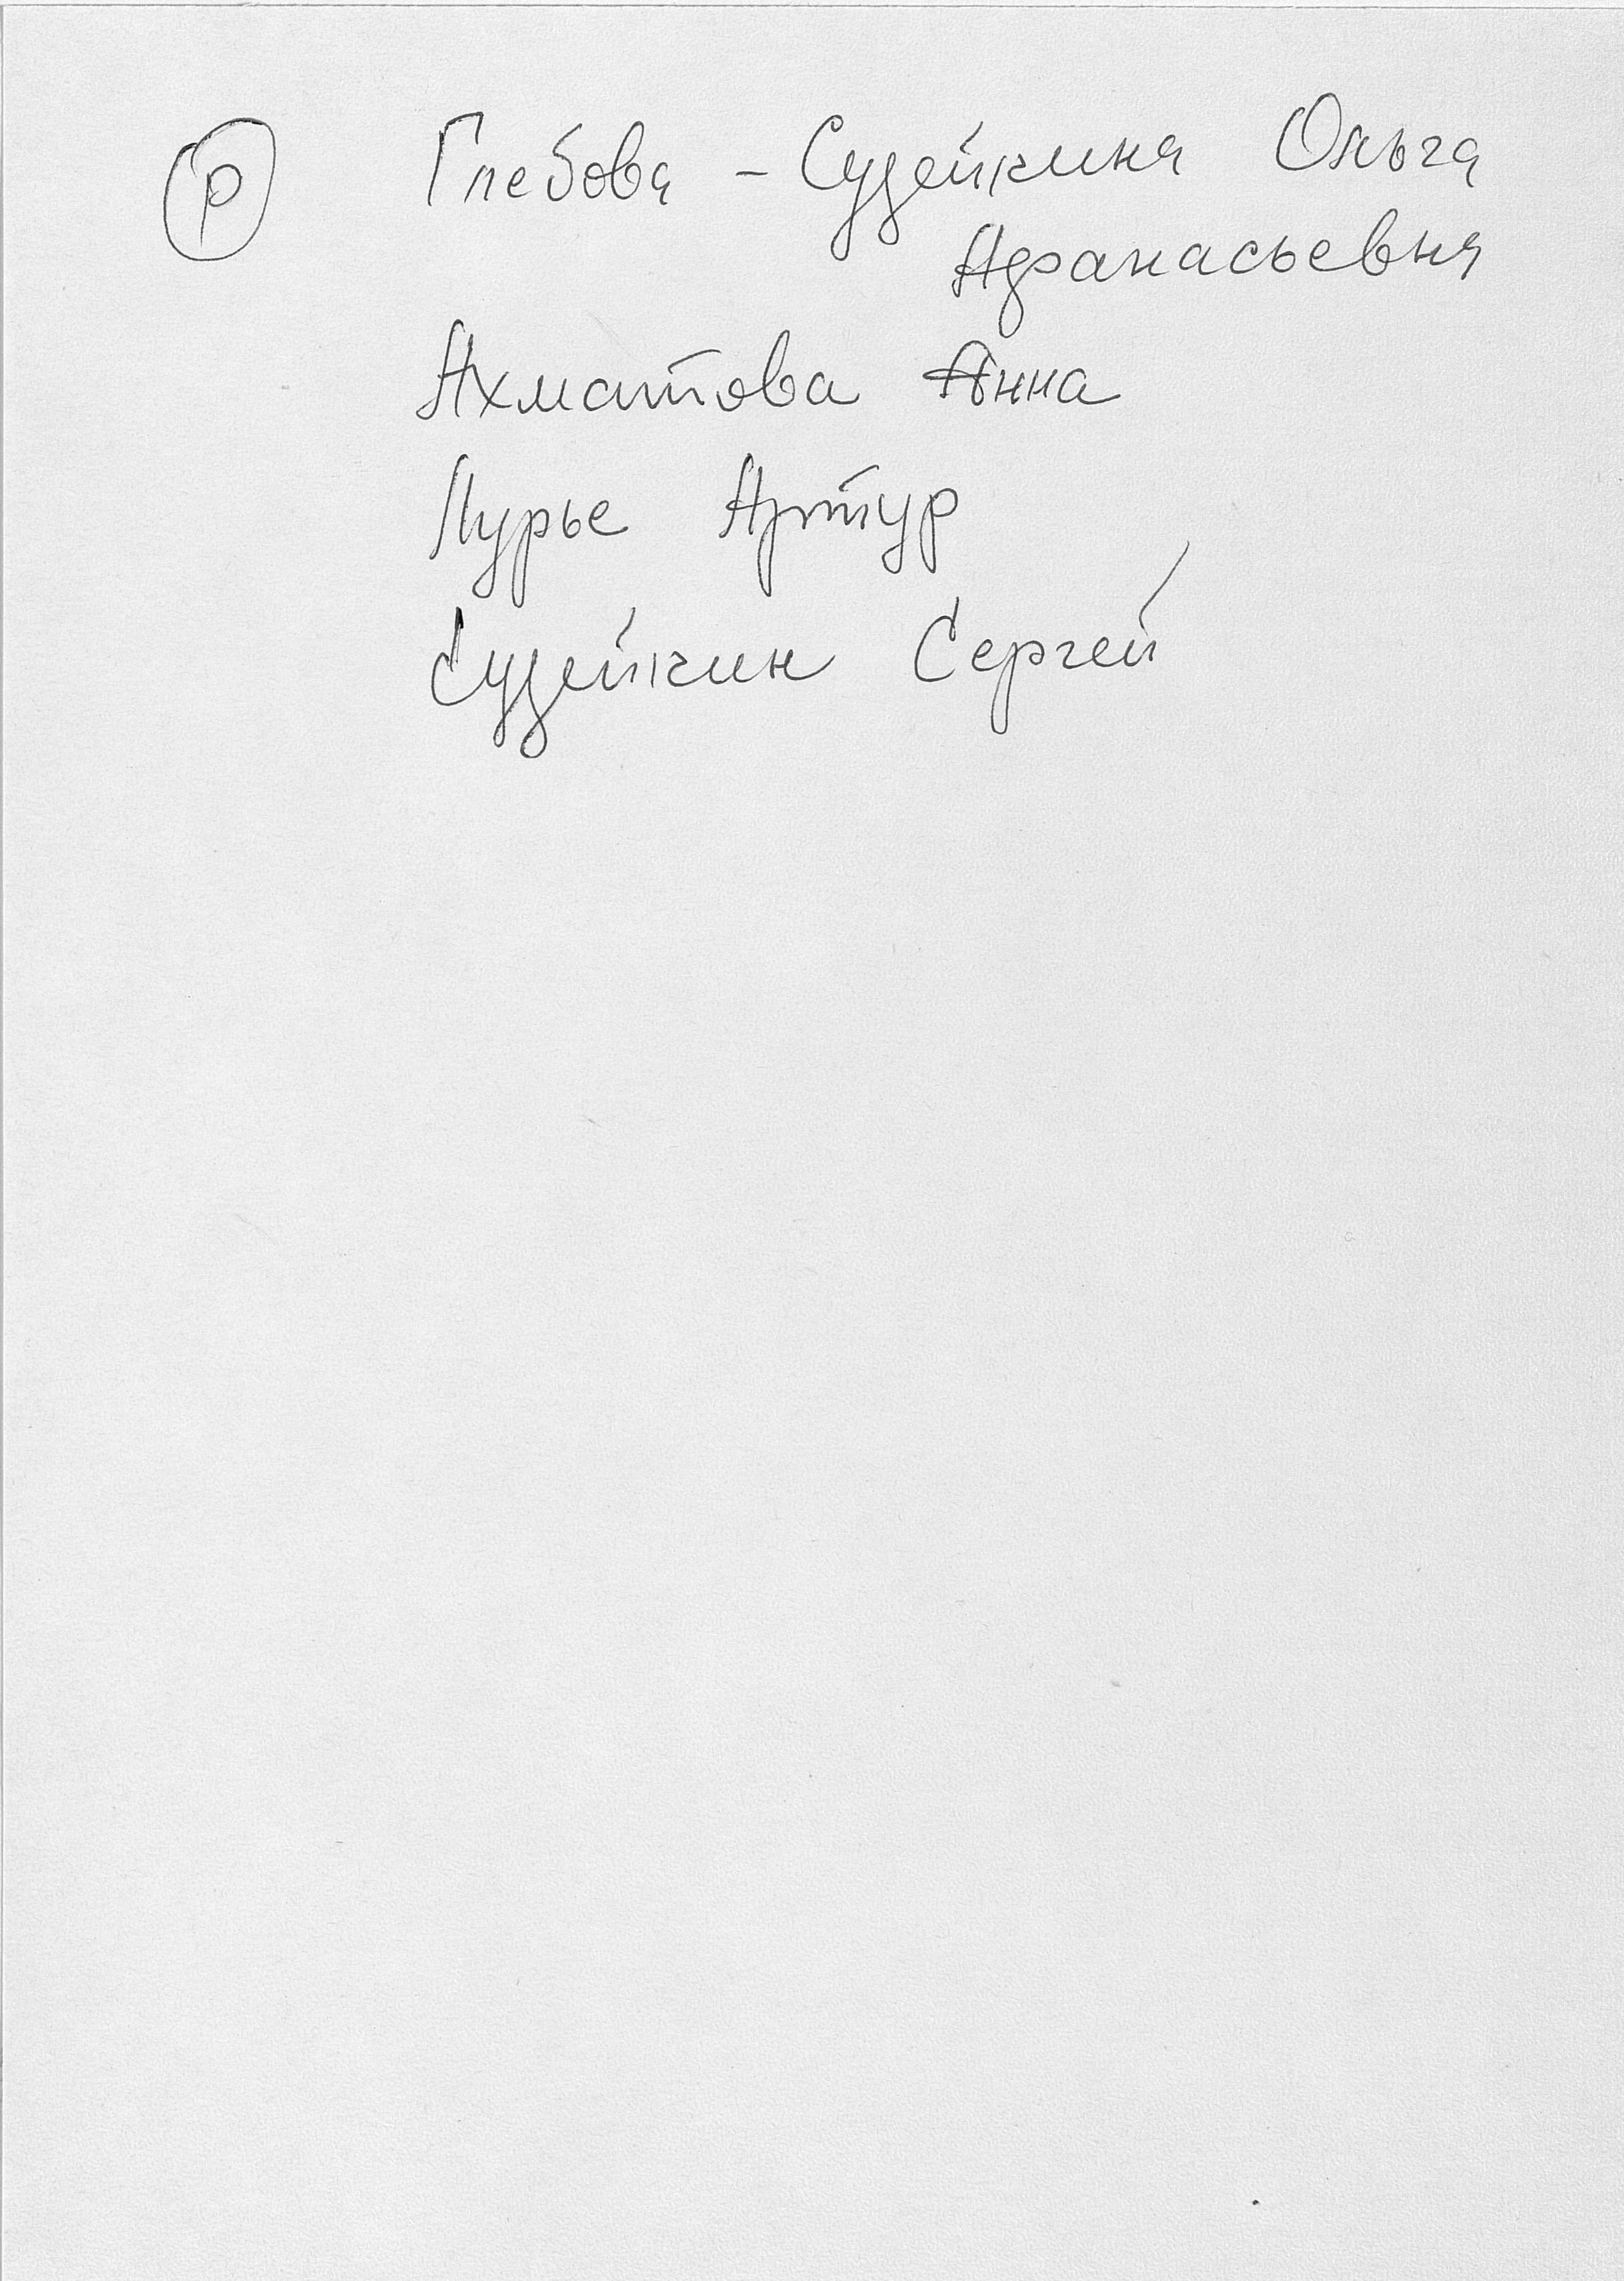 Р Глебова - Судейкина Ольга
Афанасьевна
Ахматова Анна
Лурье Артур
Судейкин Сергей